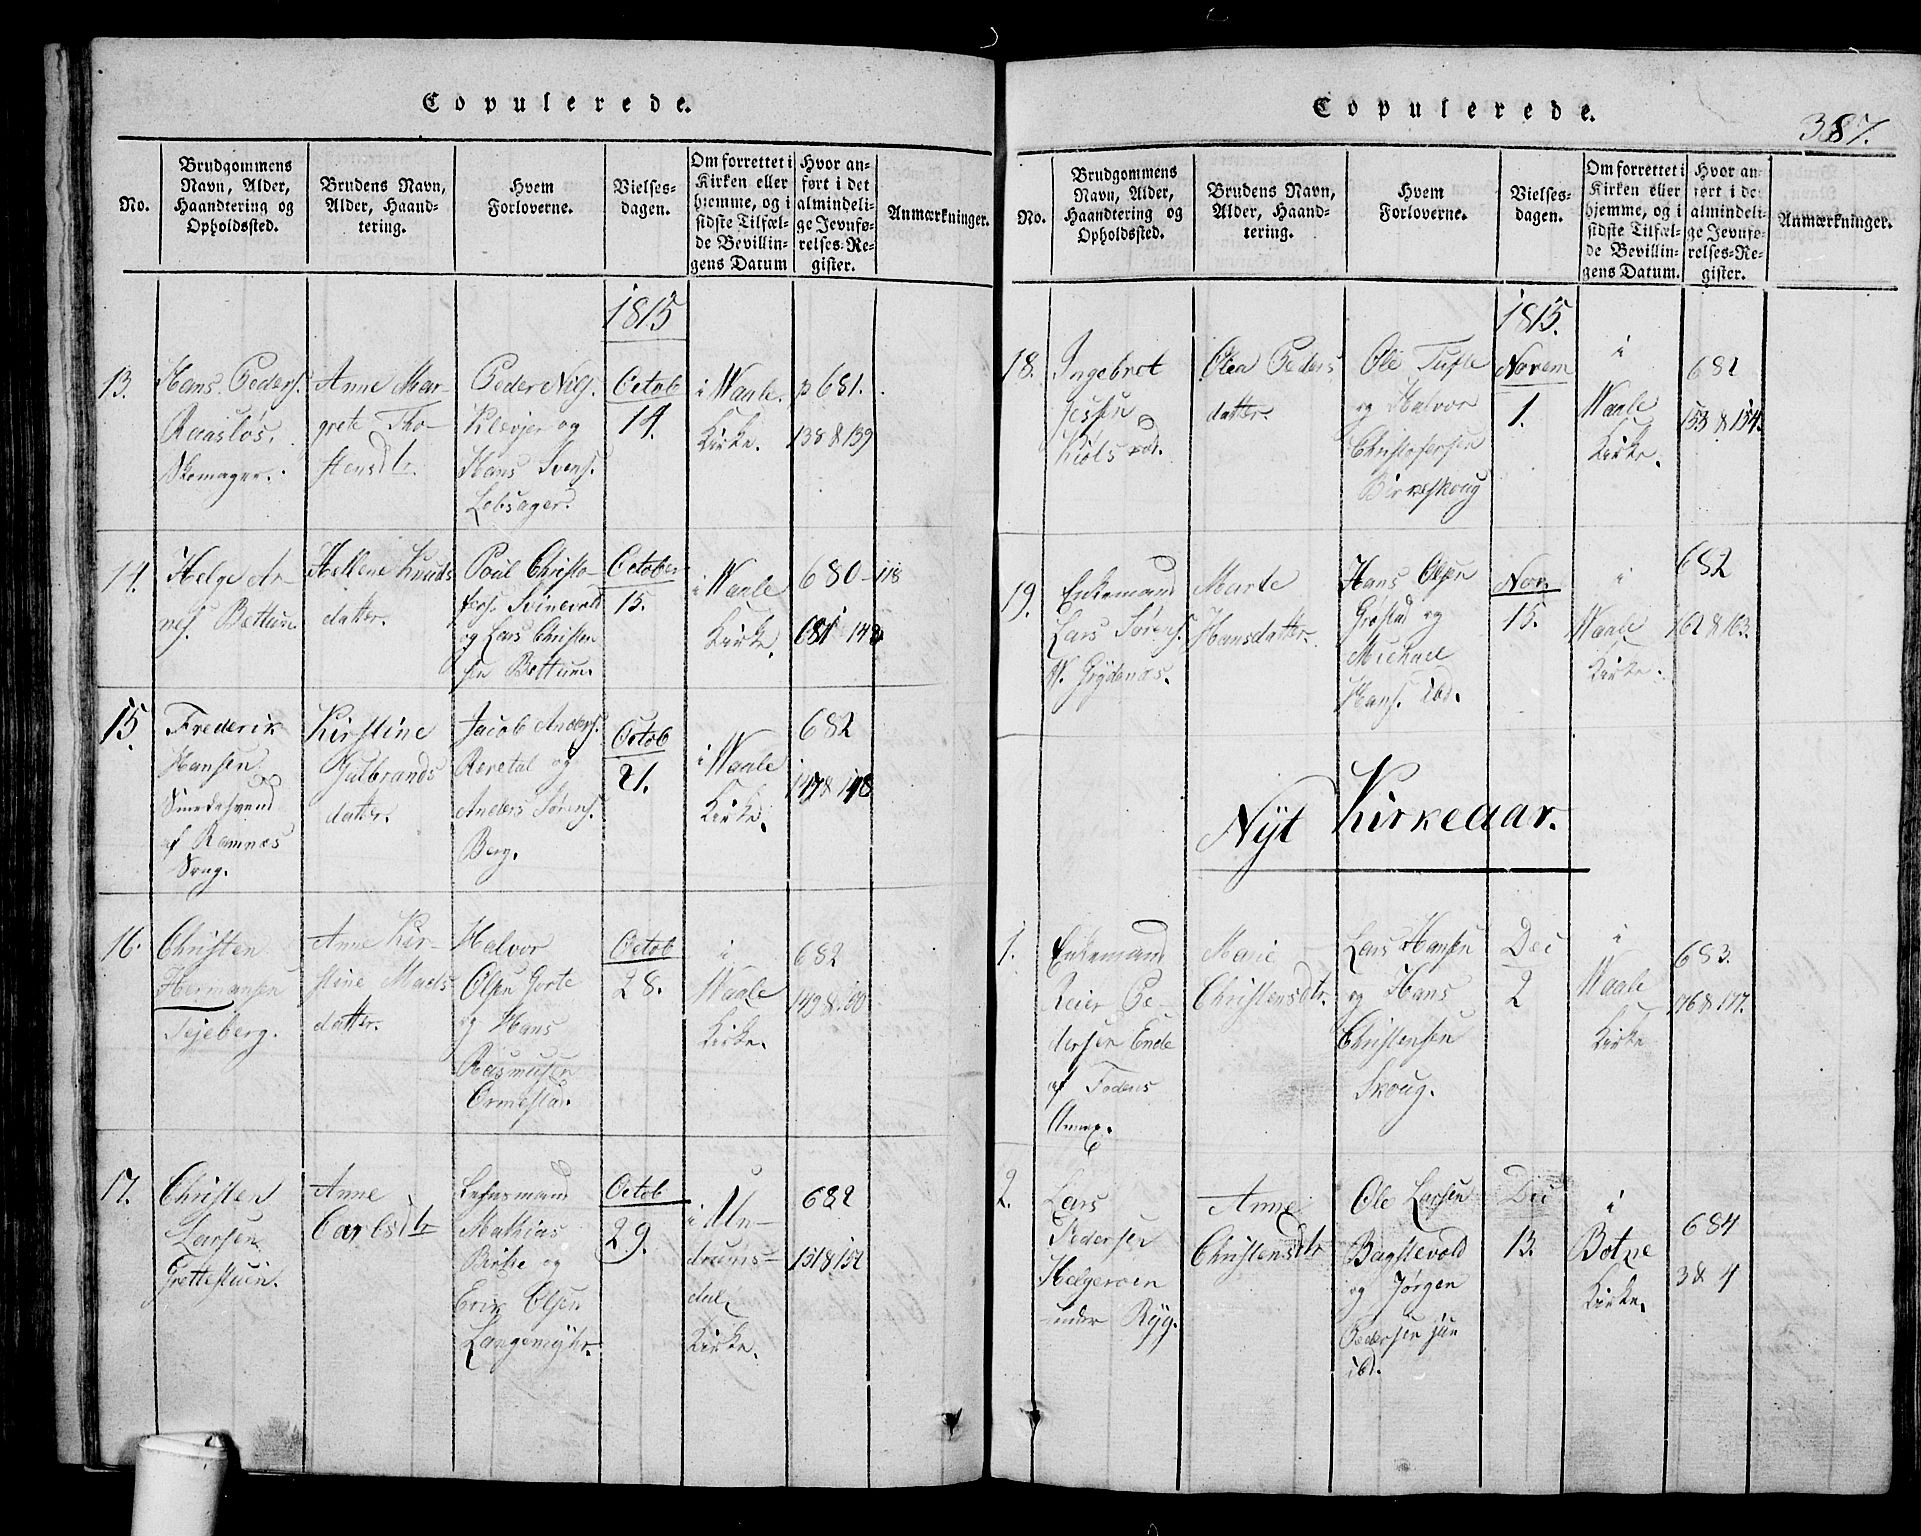 Copulerede.
No.
Brudgommens
Navn, Alder,
Haandtering og
Opholdssted.
Brudens Navn,
Alder, Haand-
tering.
Hvem
Forloverne.
Vielses-
dagen.
Om forrettet i
Kirken eller
hjemme, og i
sidste Tilfæl-
de Bevillin-
gens Datum
Hvor an-
ført i det
almindeli-
ge Jevnfø-
relses-Re-
gister.
Anmærkninger.
1815
13.
Hans Peders.
Raasløs.
Skomager.
Anne Mar-
grete Tho-
stensdtr.
Peder Nils.
Klevjer og
Hans Svens.
Lebsager.
Octob
14.
i Waale
Kirke.
p 681.
138 & 139
14.
Helge An-
nes. Bettum
Hellene Knuds
datter.
Poul Christo-
fers. Svinevold
og Lars Christen
sen Bettum.
October
15.
i Waale
Kirke.
680-118
681 142
15.
Frederik
Hansen
Smedesvend
af Ramnæs
Sogn.
Kirstine
Gulbrands
datter.
Jacob Anders.
Revetal og
Anders Sørens.
Berg.
Octob
21.
i Waale
Kirke.
682
147 & 148
16.
Christen
Hermansen
Tejeberg.
Anne Kir-
stine Mads
datter.
Halvor
Olsen Gorte
og Hans
Rasmusen
Ormestad.
Octob
28.
i
Waale
Kirke.
682
149 & 150
17.
Christen
Larsen
Grettestuen.
Anne
Carlsdtr
Lehnsmand
Mathias
Birke og
Erik Olsen
Langemyhr.
Octob
29.
i Un-
drums-
dal
Kirke.
682
151 & 152
Copulerede.
387.
No.
Brudgommens
Navn, Alder,
Haandtering og
Opholdssted.
Brudens Navn,
Alder, Haand-
tering.
Hvem
Forloverne.
Vielses-
dagen.
Om forrettet i
Kirken eller
hjemme, og i
sidste Tilfæl-
de Bevillin-
gens Datum.
Hvor an-
ført i det
almindeli-
ge Jevnfø-
relses-Re-
gister.
Anmærkninger.
1815.
18.
Ingebret
Jessen
Kiølsrød.
Olea Peders
datter.
Ole Tufte
og Halvor
Christofersen
Birkeskoug
Novem
1.
i
Waale
Kirke.
682
153 & 154.
19.
Enkemand
Lars Sørens.
W. Grydenæs.
Marte
Hansdatter.
Hans Olsen
Grøstad og
Michael
Hans. ibd.
Nov
15.
i
Waale
Kirke.
682
162 & 163.
Nyt Kirkeaar.
1.
Enkemand
Reier Pe-
dersen Ende
af Fodens
Annex.
Marie
Christensdtr.
Lars Hansen
og Hans
Christensen
Skoug.
Dec
2
i
Waale
Kirke
683.
176 & 177.
2.
Lars
Pedersen
Helgeroen
under Ryg.
Anne
Christensdtr
Ole Larsen
Bagstevold
og Jørgen
Pedersen jun
ibd.
Dec
13.
i
Botne
Kirke.
684
3 & 4